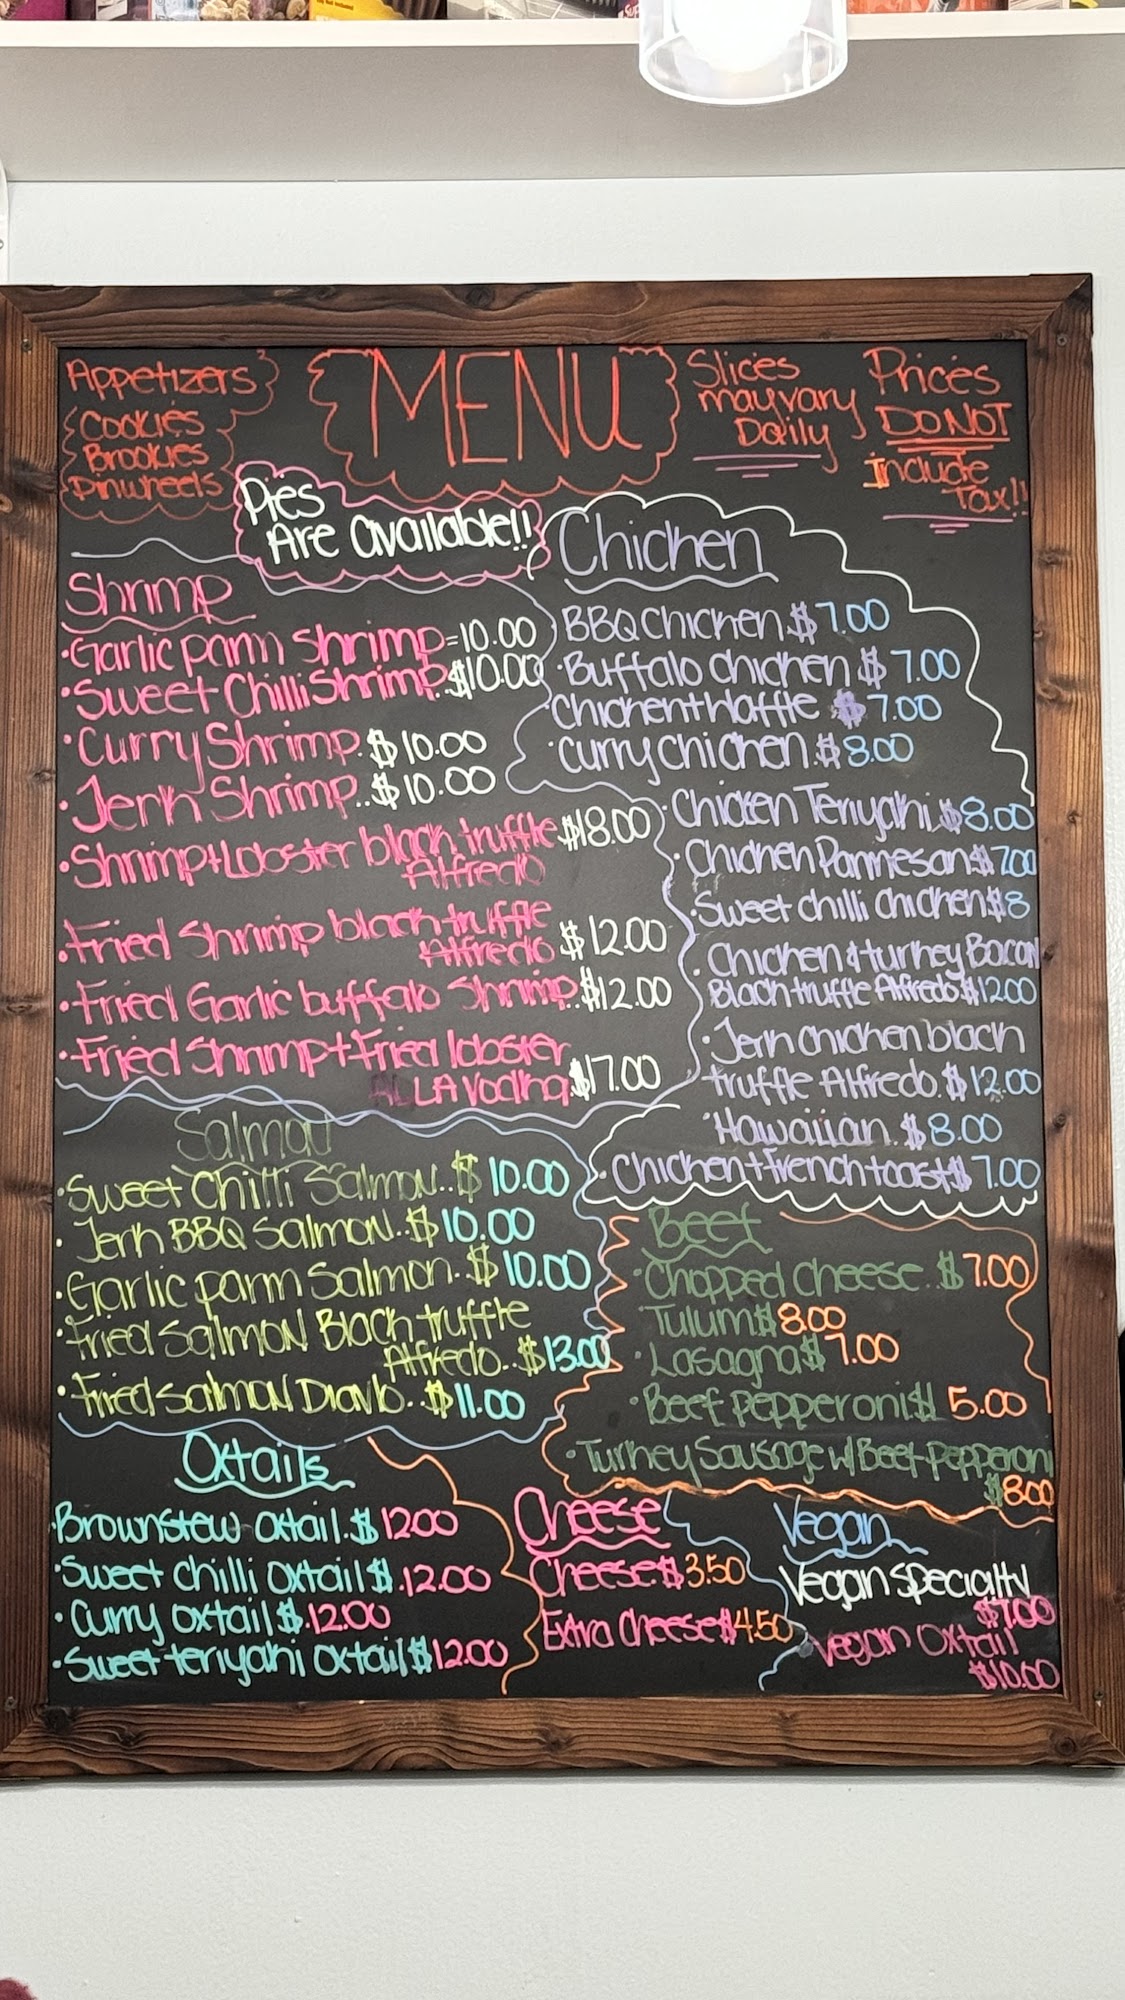 Appetizers
Cookies
Brookies
Pinwheels
MENU
Slices
may vary
Daily
Prices
DO NOT
Include
Tax!!
Pies
Are available!!
Shrimp
• Garlic parm shrimp = 10.00
• Sweet Chilli Shrimp. $10.00
• Curry Shrimp. $10.00
• Jerk Shrimp.. $10.00
• Shrimp + Lobster black truffle $18.00
Alfredo
• Fried Shrimp black truffle
Alfredo $12.00
• Fried Garlic buffalo Shrimp.. $12.00
• Fried Shrimp + Fried lobster
ALLA Vodka $17.00
Chicken
BBQ chicken $7.00
• Buffalo chicken $7.00
Chicken + Waffle $7.00
• Curry chicken. $8.00
• Chicken Teriyaki. $8.00
• Chicken Parmesan $7.00
• Sweet chilli chicken $8
• Chicken + turkey Bacon
Black truffle Alfredo. $12.00
• Jerk chicken black
truffle Alfredo. $12.00
• Hawaiian. $8.00
• Chicken + French toast $7.00
Salmon
• Sweet Chilli Salmon.. $10.00
• Jerk BBQ Salmon.. $10.00
• Garlic parm Salmon. $10.00
• Fried Salmon Black truffle
Alfredo.. $13.00
• Fried Salmon Diavlo.. $11.00
Beef
• Chopped cheese.. $7.00
• Tulum $8.00
• Lasagna $7.00
• Beef pepperoni $5.00
• Turkey Sausage w/ Beef Pepperoni
$8.00
Oxtails
• Brownstew oxtail. $12.00
• Sweet chilli oxtail $.12.00
• Curry oxtail $.12.00
• Sweet teriyaki oxtail $12.00
Cheese
Cheese $3.50
Extra Cheese $4.50
Vegan
Vegan specialty
$7.00
Vegan Oxtail
$10.00